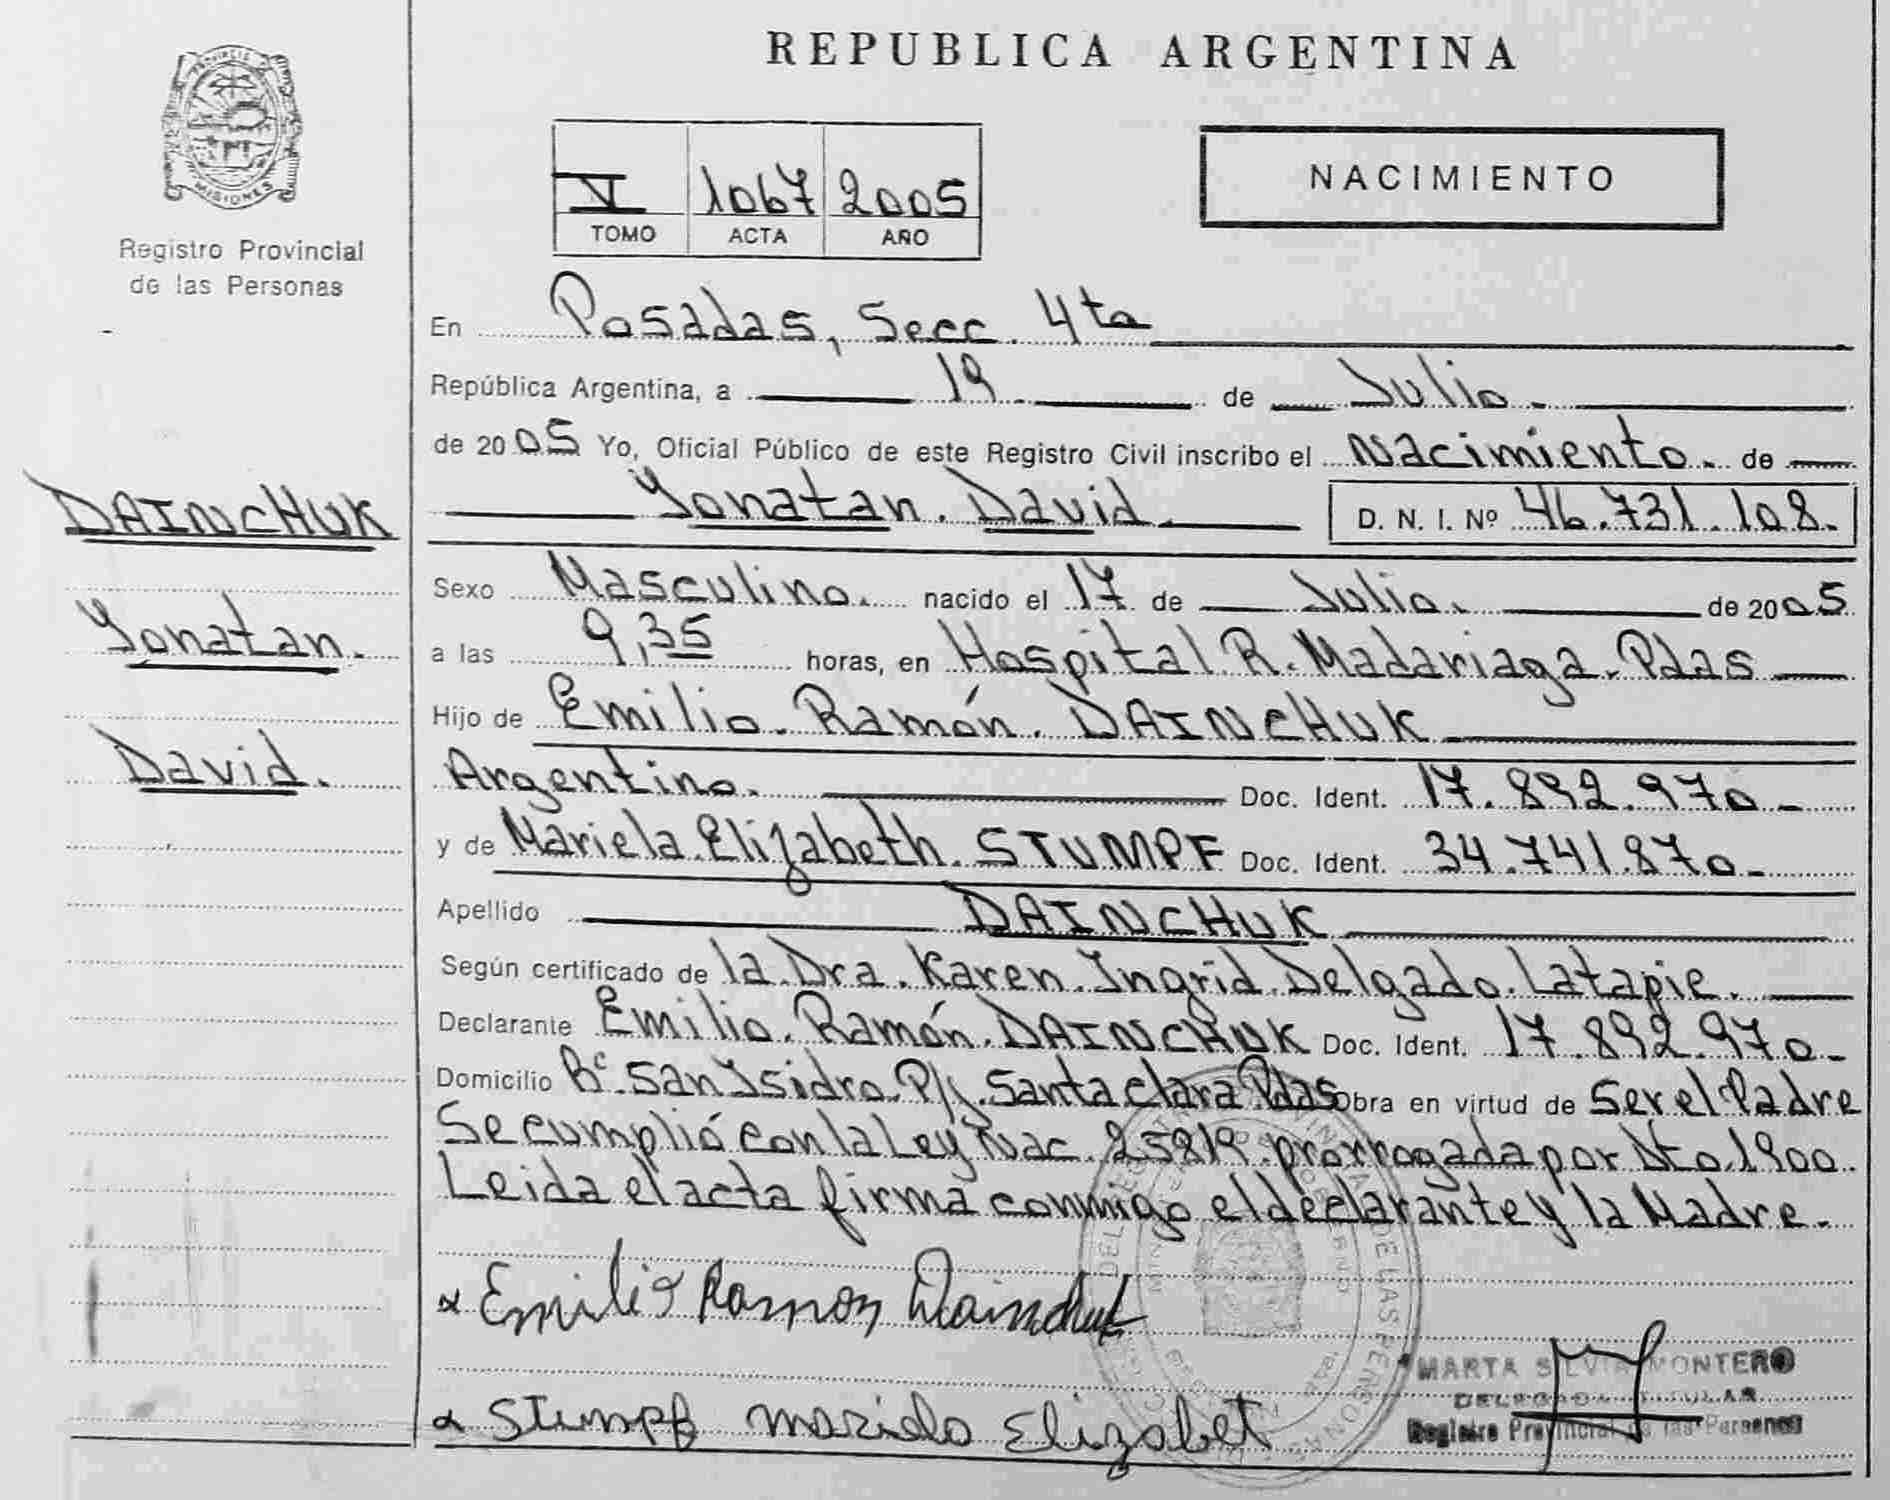 REPUBLICA ARGENTINA
PROVINCIA DE MISIONES
Registro Provincial
de las Personas
V 1067 2005
TOMO ACTA AÑO
NACIMIENTO
En Posadas, Secc. 4ta
República Argentina, a 19 de Julio.
de 2005 Yo, Oficial Público de este Registro Civil inscribo el Nacimiento. de
Yonatan. David. D. N. I. Nº 46.731.108.
DAINCHUK
Yonatan.
David.
Sexo Masculino. nacido el 17 de Julio. de 2005
a las 9,35 horas, en Hospital R. Madariaga. Pdas
Hijo de Emilio. Ramón. DAINCHUK
Argentino. Doc. Ident. 17.892.970-
y de Mariela. Elizabeth. STUMPF Doc. Ident. 34.741.870-
Apellido DAINCHUK
Según certificado de la Dra. Karen. Ingrid. Delgado. Latapie.
Declarante Emilio. Ramón. DAINCHUK Doc. Ident. 17.892.970-
Domicilio Bº San Ysidro. P/j. Santa Clara Pdas Obra en virtud de Ser el Padre
Se cumplió con la Ley Nac. 25819. prorrogada por Dto. 1900.
Leida el acta firma conmigo el declarante y la Madre.
x Emilio Ramon Dainchuk
x Stumpf Mariela Elizabet
MARTA SILVIA MONTERO
DELEGADA TITULAR
Registro Provincial de las Personas